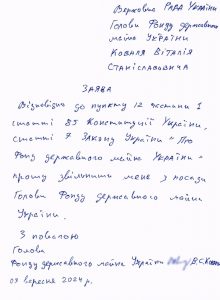 Верховна РАДА УКРАЇНИ
Голови Фонду державного
майна УКРАЇНИ
Коваля ВІТАЛІЯ
СТАНІСЛАВОВИЧА
ЗАЯВА
Відповідно до пункту 12 частини 1
статті 85 Конституції України,
статті 7 Закону України "Про
Фонд державного майна України"
прошу звільнити мене з посади
Голови Фонду державного майна
України.
З повагою
Голова
Фонду державного майна України В.С.Коваль
03 вересня 2024 р.